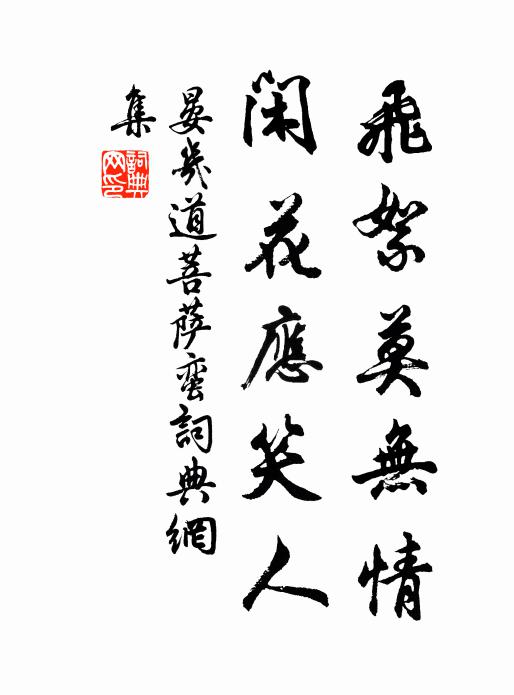 飛絮莫無情
閑花應笑人
晏幾道菩薩蠻詞典網
集
詞典网印